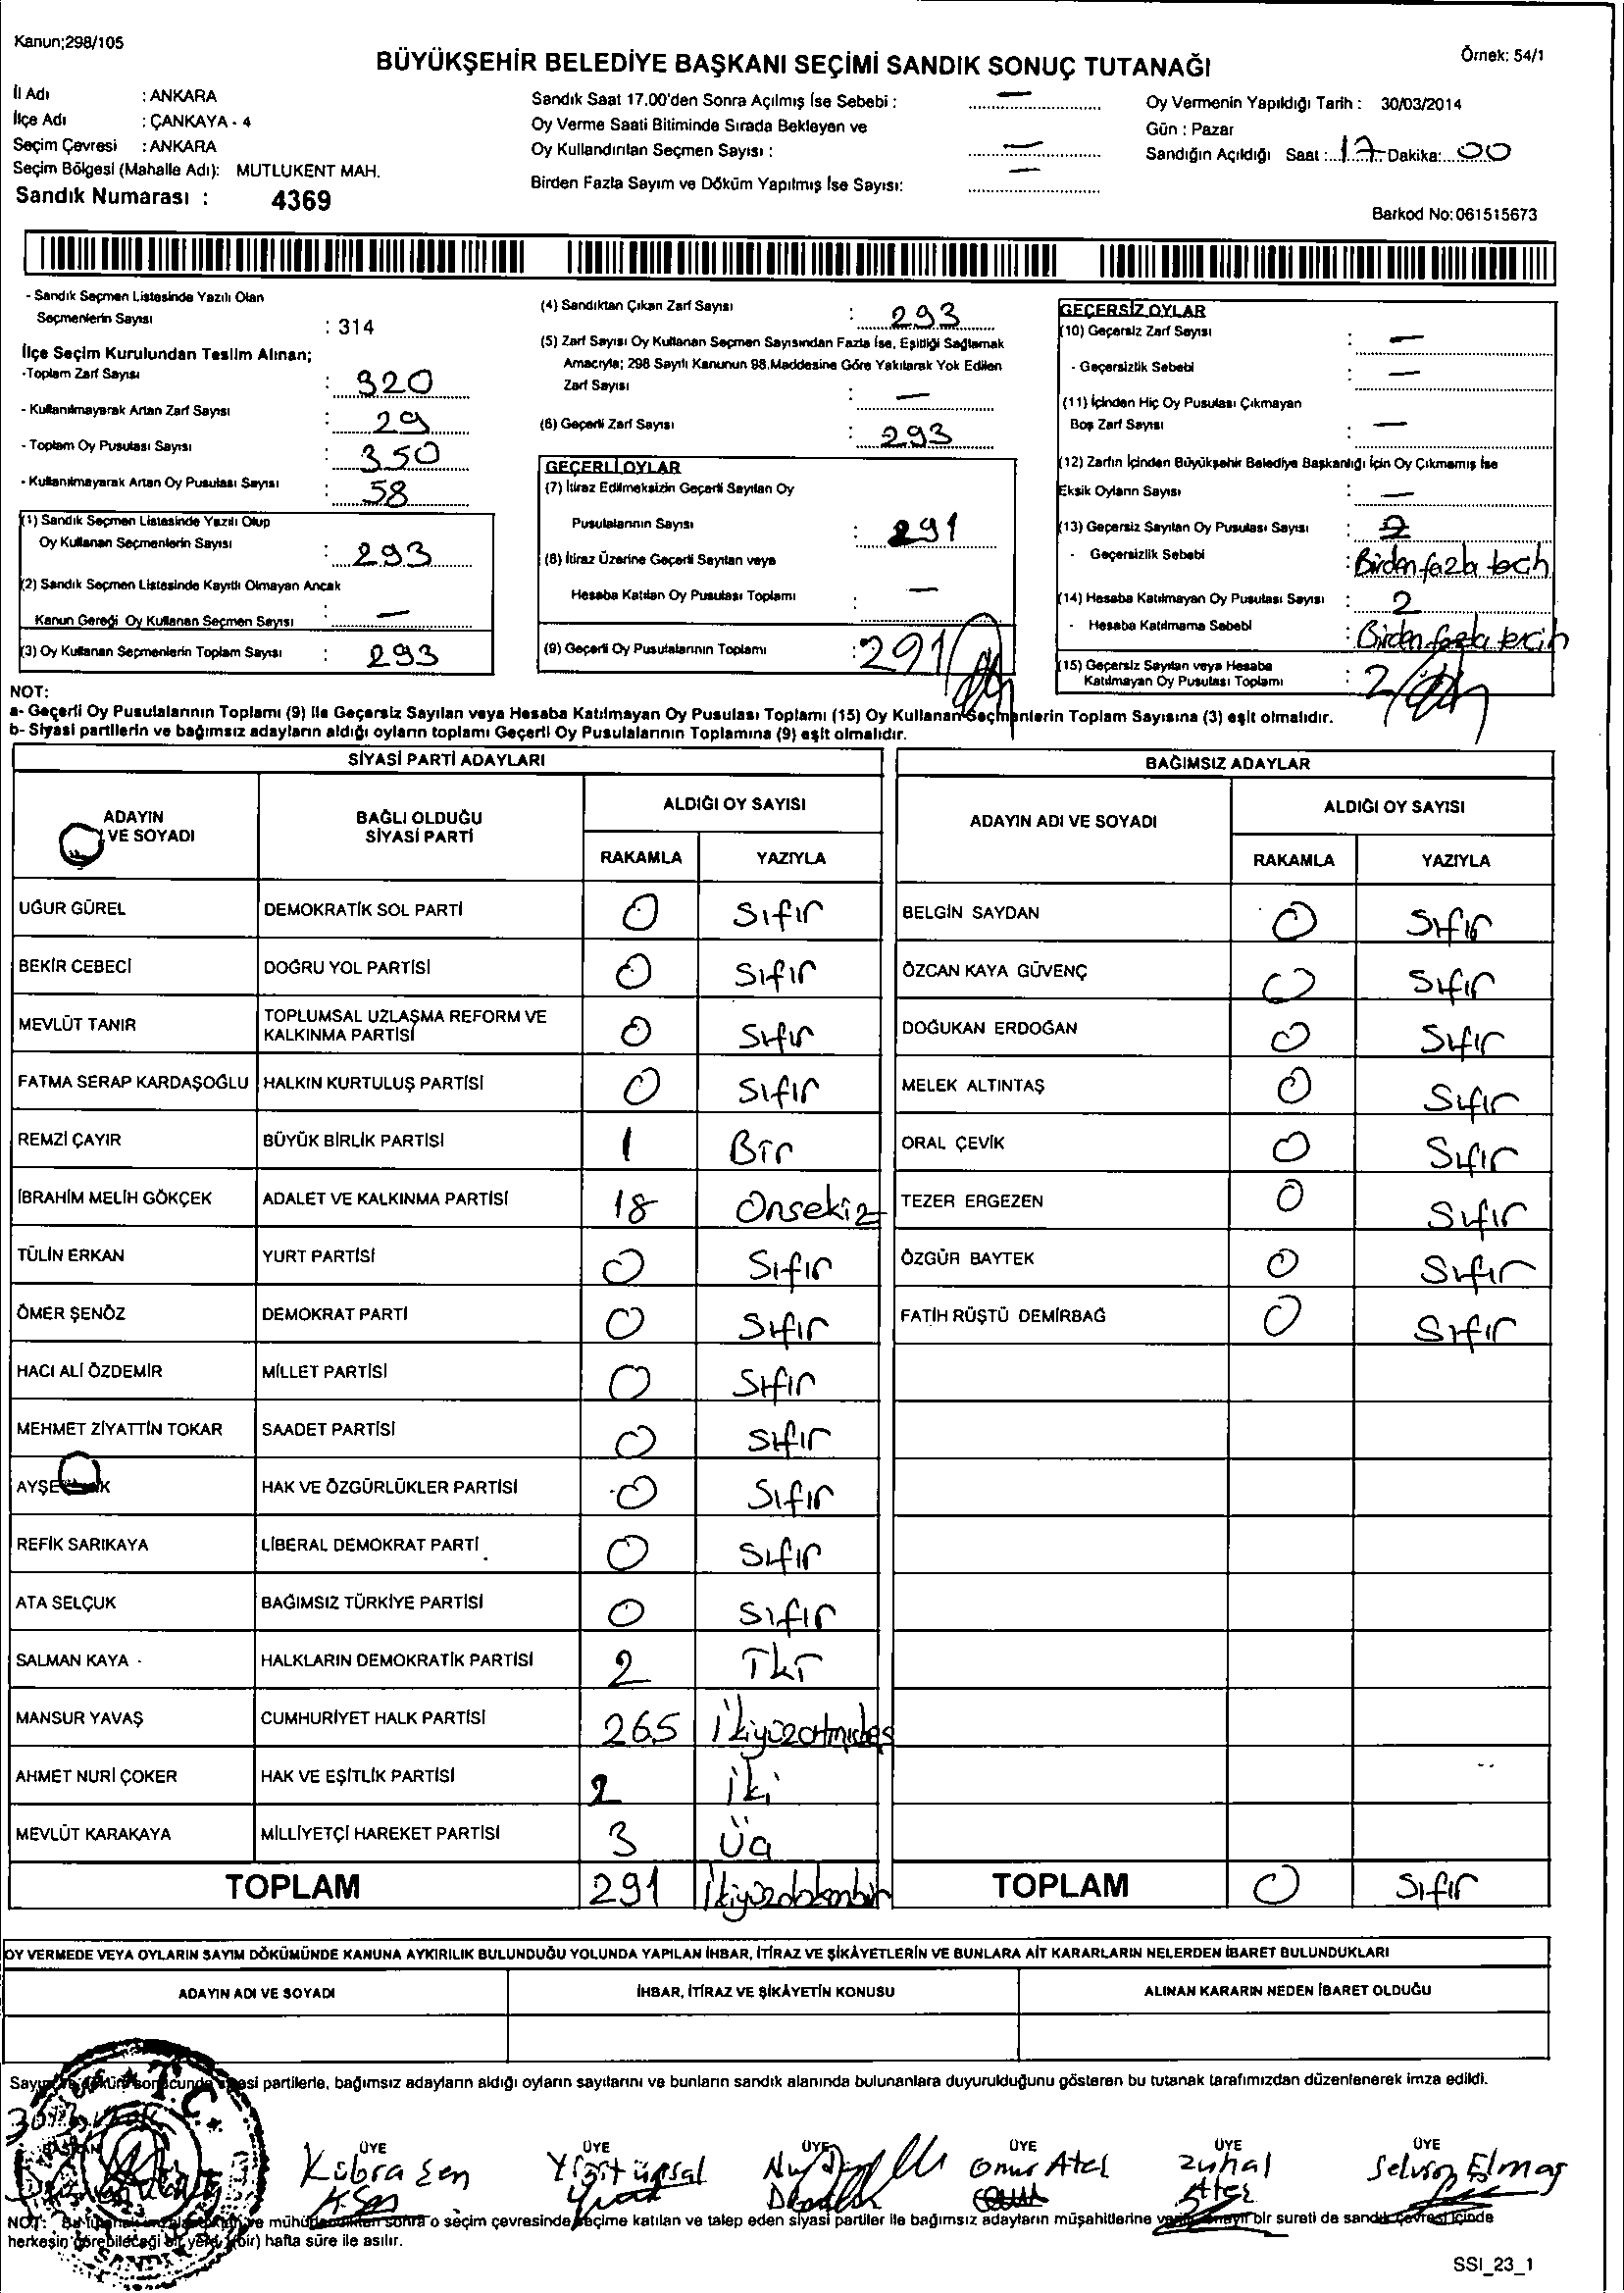 Kanun;298/105
BÜYÜKŞEHİR BELEDİYE BAŞKANI SEÇİMİ SANDIK SONUÇ TUTANAĞI
Örnek: 54/1
İl Adı : ANKARA
İlçe Adı : ÇANKAYA - 4
Seçim Çevresi : ANKARA
Seçim Bölgesi (Mahalle Adı): MUTLUKENT MAH.
Sandık Numarası : 4369
Sandık Saat 17.00'den Sonra Açılmış İse Sebebi : —
Oy Verme Saati Bitiminde Sırada Bekleyen ve
Oy Kullandırılan Seçmen Sayısı : —
Birden Fazla Sayım ve Döküm Yapılmış İse Sayısı: —
Oy Vermenin Yapıldığı Tarih : 30/03/2014
Gün : Pazar
Sandığın Açıldığı Saat : 17 Dakika: 00
Barkod No: 061515673
- Sandık Seçmen Listesinde Yazılı Olan
Seçmenlerin Sayısı : 314
İlçe Seçim Kurulundan Teslim Alınan;
-Toplam Zarf Sayısı : 320
- Kullanılmayarak Artan Zarf Sayısı : 29
- Toplam Oy Pusulası Sayısı : 350
- Kullanılmayarak Artan Oy Pusulası Sayısı : 58
(1) Sandık Seçmen Listesinde Yazılı Olup
Oy Kullanan Seçmenlerin Sayısı : 293
(2) Sandık Seçmen Listesinde Kayıtlı Olmayan Ancak
Kanun Gereği Oy Kullanan Seçmen Sayısı : —
(3) Oy Kullanan Seçmenlerin Toplam Sayısı : 293
(4) Sandıktan Çıkan Zarf Sayısı : 293
(5) Zarf Sayısı Oy Kullanan Seçmen Sayısından Fazla İse, Eşitliği Sağlamak
Amacıyla; 298 Sayılı Kanunun 98.Maddesine Göre Yakılarak Yok Edilen
Zarf Sayısı : —
(6) Geçerli Zarf Sayısı : 293
GEÇERLİ OYLAR
(7) İtiraz Edilmeksizin Geçerli Sayılan Oy
Pusulalarının Sayısı : 291
(8) İtiraz Üzerine Geçerli Sayılan veya
Hesaba Katılan Oy Pusulası Toplamı : —
(9) Geçerli Oy Pusulalarının Toplamı : 291
GEÇERSİZ OYLAR
(10) Geçersiz Zarf Sayısı : —
- Geçersizlik Sebebi : —
(11) İçinden Hiç Oy Pusulası Çıkmayan
Boş Zarf Sayısı : —
(12) Zarfın İçinden Büyükşehir Belediye Başkanlığı İçin Oy Çıkmamış İse
Eksik Oyların Sayısı : —
(13) Geçersiz Sayılan Oy Pusulası Sayısı : 2
- Geçersizlik Sebebi : Birden fazla tecih
(14) Hesaba Katılmayan Oy Pusulası Sayısı : 2
- Hesaba Katılmama Sebebi : Birden fazla tercih
(15) Geçersiz Sayılan veya Hesaba
Katılmayan Oy Pusulası Toplamı : 2
NOT:
a- Geçerli Oy Pusulalarının Toplamı (9) ile Geçersiz Sayılan veya Hesaba Katılmayan Oy Pusulası Toplamı (15) Oy Kullanan Seçmenlerin Toplam Sayısına (3) eşit olmalıdır.
b- Siyasi partilerin ve bağımsız adayların aldığı oyların toplamı Geçerli Oy Pusulalarının Toplamına (9) eşit olmalıdır.
SİYASİ PARTİ ADAYLARI
ADAYIN VE SOYADI
BAĞLI OLDUĞU SİYASİ PARTİ
ALDIĞI OY SAYISI
RAKAMLA YAZIYLA
UĞUR GÜREL DEMOKRATİK SOL PARTİ 0 Sıfır
BEKİR CEBECİ DOĞRU YOL PARTİSİ 0 Sıfır
MEVLÜT TANIR TOPLUMSAL UZLAŞMA REFORM VE KALKINMA PARTİSİ 0 Sıfır
FATMA SERAP KARDAŞOĞLU HALKIN KURTULUŞ PARTİSİ 0 Sıfır
REMZİ ÇAYIR BÜYÜK BİRLİK PARTİSİ 1 Bir
İBRAHİM MELİH GÖKÇEK ADALET VE KALKINMA PARTİSİ 18 Onsekiz
TÜLİN ERKAN YURT PARTİSİ 0 Sıfır
ÖMER ŞENÖZ DEMOKRAT PARTİ 0 Sıfır
HACI ALİ ÖZDEMİR MİLLET PARTİSİ 0 Sıfır
MEHMET ZİYATTİN TOKAR SAADET PARTİSİ 0 Sıfır
AYŞE HAK VE ÖZGÜRLÜKLER PARTİSİ 0 Sıfır
REFİK SARIKAYA LİBERAL DEMOKRAT PARTİ 0 Sıfır
ATA SELÇUK BAĞIMSIZ TÜRKİYE PARTİSİ 0 Sıfır
SALMAN KAYA HALKLARIN DEMOKRATİK PARTİSİ 2 İki
MANSUR YAVAŞ CUMHURİYET HALK PARTİSİ 265 ikiyüzatmışbeş
AHMET NURİ ÇOKER HAK VE EŞİTLİK PARTİSİ 2 iki
MEVLÜT KARAKAYA MİLLİYETÇİ HAREKET PARTİSİ 3 Üç
TOPLAM 291 ikiyüzdoksanbir
BAĞIMSIZ ADAYLAR
ADAYIN ADI VE SOYADI
ALDIĞI OY SAYISI
RAKAMLA YAZIYLA
BELGİN SAYDAN 0 Sıfır
ÖZCAN KAYA GÜVENÇ 0 Sıfır
DOĞUKAN ERDOĞAN 0 Sıfır
MELEK ALTINTAŞ 0 Sıfır
ORAL ÇEVİK 0 Sıfır
TEZER ERGEZEN 0 Sıfır
ÖZGÜR BAYTEK 0 Sıfır
FATİH RÜŞTÜ DEMİRBAĞ 0 Sıfır
TOPLAM 0 Sıfır
OY VERMEDE VEYA OYLARIN SAYIM DÖKÜMÜNDE KANUNA AYKIRILIK BULUNDUĞU YOLUNDA YAPILAN İHBAR, İTİRAZ VE ŞİKÂYETLERİN VE BUNLARA AİT KARARLARIN NELERDEN İBARET BULUNDUKLARI
ADAYIN ADI VE SOYADI İHBAR, İTİRAZ VE ŞİKÂYETİN KONUSU ALINAN KARARIN NEDEN İBARET OLDUĞU
Sayım ve döküm sonucunda siyasi partilerle, bağımsız adayların aldığı oyların sayılarını ve bunların sandık alanında bulunanlara duyurulduğunu gösteren bu tutanak tarafımızdan düzenlenerek imza edildi.
T.C.
BAŞKAN ÜYE ÜYE ÜYE ÜYE ÜYE ÜYE
Kübra Şen Yiğit ünsal Onur Atel Zuhal Ateş Elmas
NOT: ve mühürlendikten sonra o seçim çevresinde seçime katılan ve talep eden siyasi partiler ile bağımsız adayların müşahitlerine bir sureti de sandık çevresi içinde
herkesin görebileceği bir yere (bir) hafta süre ile asılır.
SSI_23_1